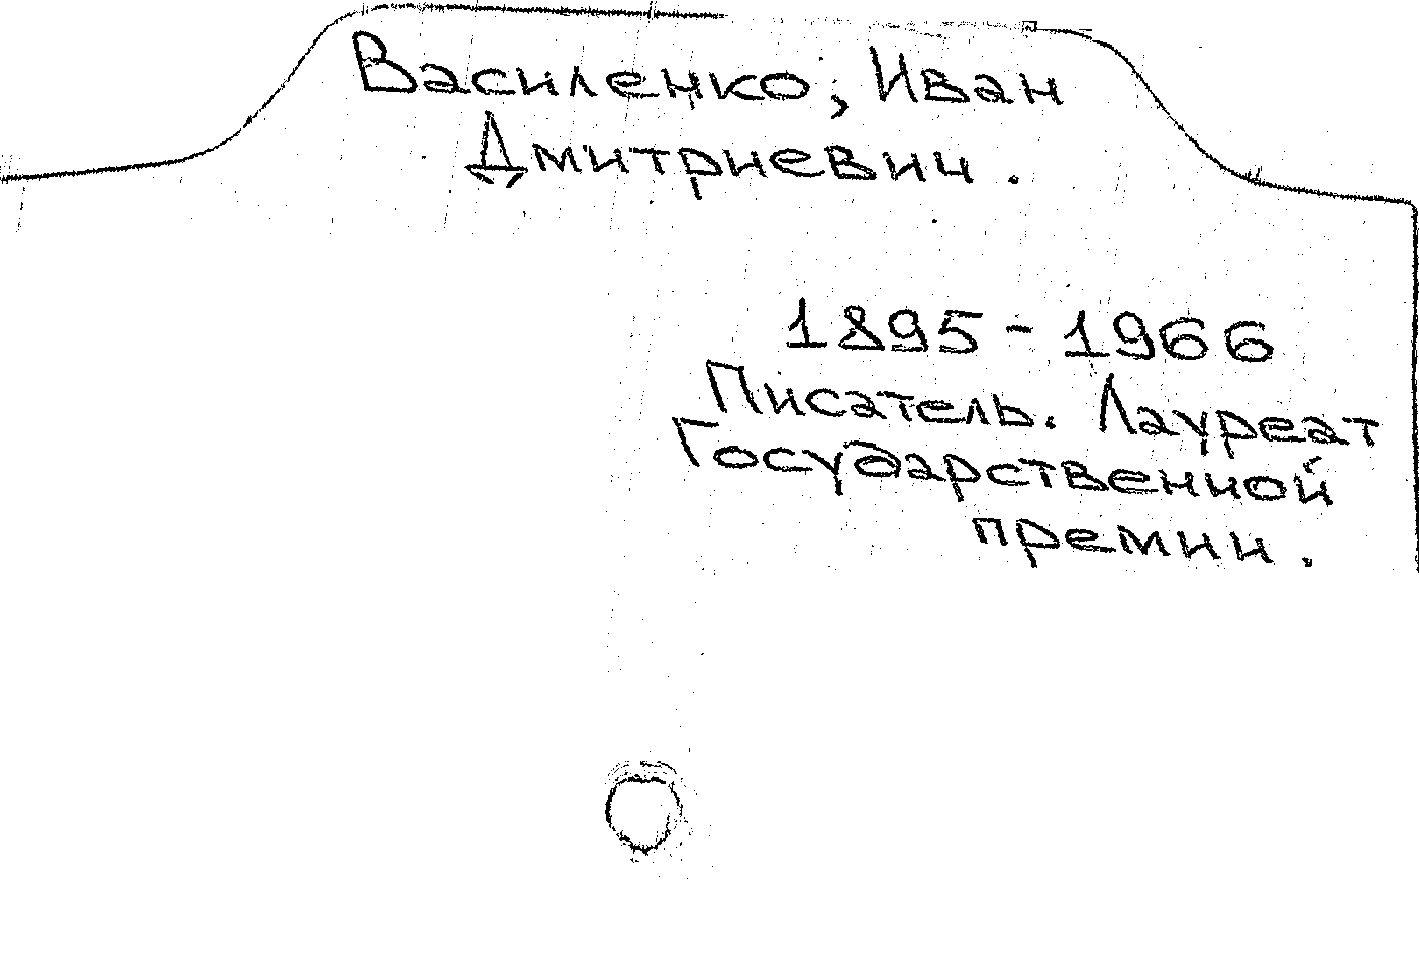 Василенко, Иван
Дмитриевич.
1895 - 1966
Писатель. Лауреат
Государственной
премии.